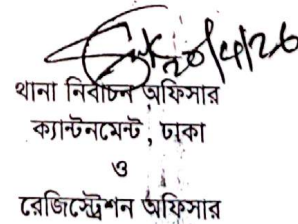 20/4/26
থানা নির্বাচন অফিসার
ক্যান্টনমেন্ট, ঢাকা
ও
রেজিস্ট্রেশন অফিসার